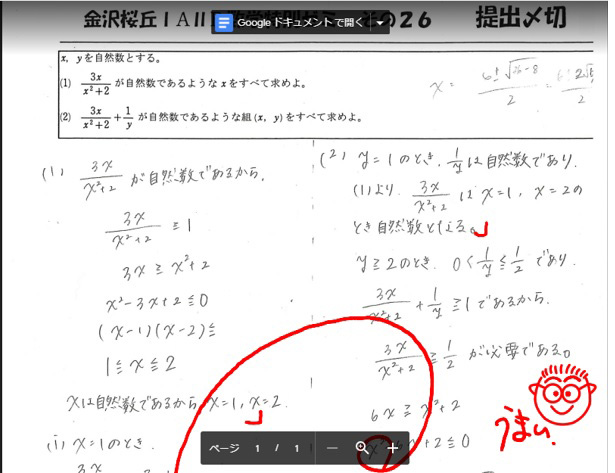 金沢桜丘ⅠAⅡ
その26
提出〆切
Google ドキュメントで開く
x, yを自然数とする。
(1) 3x/(x²+2) が自然数であるような x をすべて求めよ。
(2) 3x/(x²+2) + 1/y が自然数であるような組 (x, y) をすべて求めよ。
x =
(1) 3x/(x²+2) が自然数であるから,
3x/(x²+2) ≧ 1
3x ≧ x²+2
x²-3x+2 ≦ 0
(x-1)(x-2) ≦
1 ≦ x ≦ 2
xは自然数であるから x=1, x=2.
(i) x=1のとき.
3x
(2) y=1のとき. 1/y は自然数であり,
(1)より. 3x/(x²+2) は x=1, x=2の
とき自然数となる。
y≧2のとき. 0 < 1/y ≦ 1/2 であり.
3x/(x²+2) + 1/y ≧ 1 であるから.
3x/(x²+2) ≧ 1/2 が必要である。
6x ≧ x²+2
x+2 ≦ 0
うまい.
ページ 1 / 1